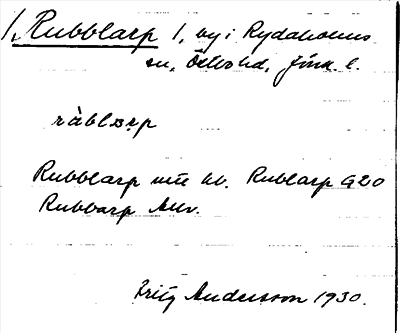 1, Rubblarp 1, by i Rydaholms
sn, Östbo hd, Jönk. l.
ràblarp
Rubblarp
Rublarp G20
Rubbarp
Fritz Andersson 1930.